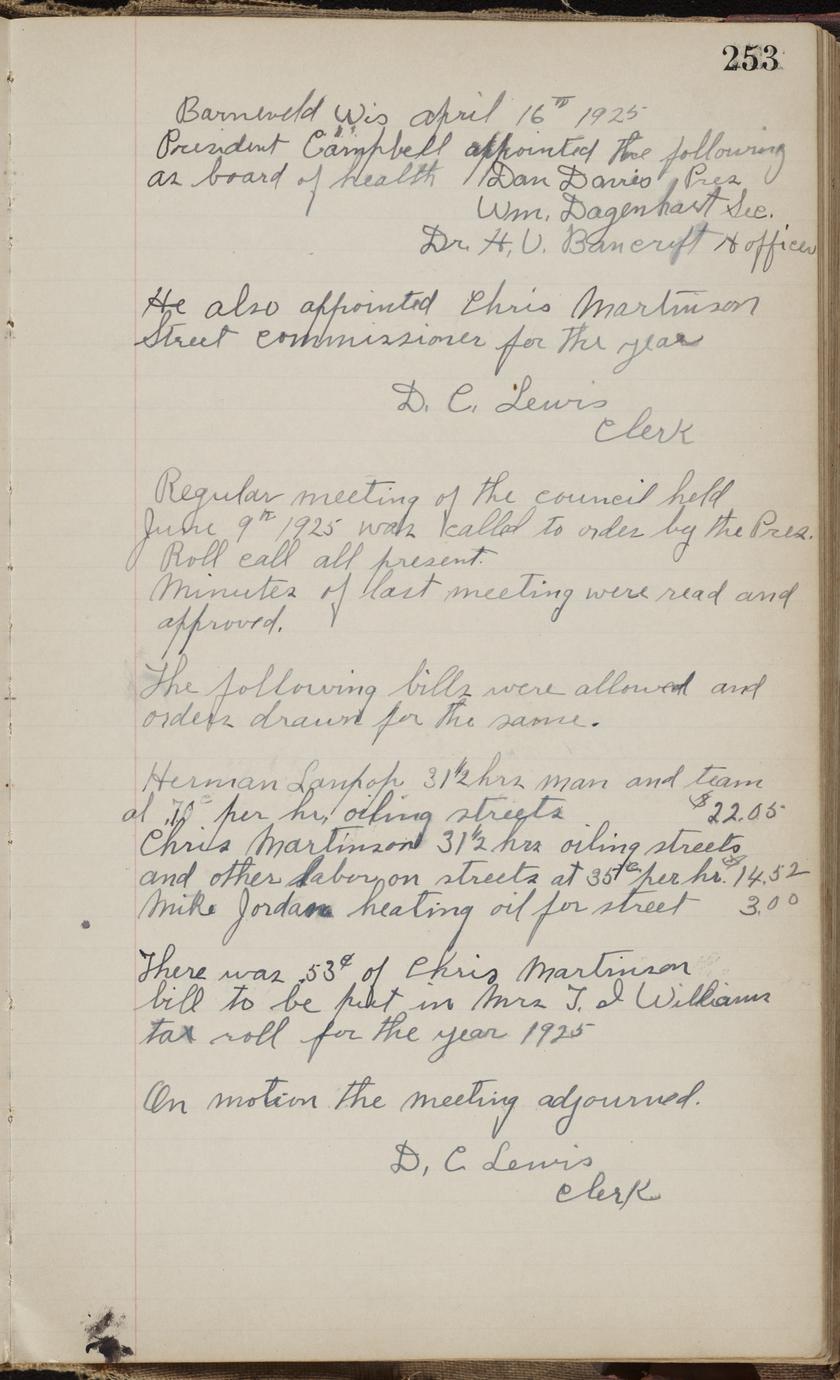 253
Barneveld Wis april 16th 1925
President Campbell appointed the following
as board of health Dan Davis Pres
Wm. Dagenhart Sec.
Dr. H, V. Bancroft H officer
He also appointed Chris Martinson
Street commissioner for the year
D. C. Lewis
Clerk
Regular meeting of the council held
June 9th 1925 was called to order by the Pres.
Roll call all present.
Minutes of last meeting were read and
approved.
The following bills were allowed and
orders drawn for the same.
Herman Lanpop 31½ hrs man and team
at .70c per hr, oiling streets $22.05
Chris Martinson 31½ hrs oiling streets
and other labor on streets at 35c per hr. $14.52
Mike Jordan heating oil for street 3.00
There was .53¢ of Chris Martinson
bill to be put in Mrs T. I Williams
tax roll for the year 1925
On motion the meeting adjourned.
D, C Lewis
Clerk